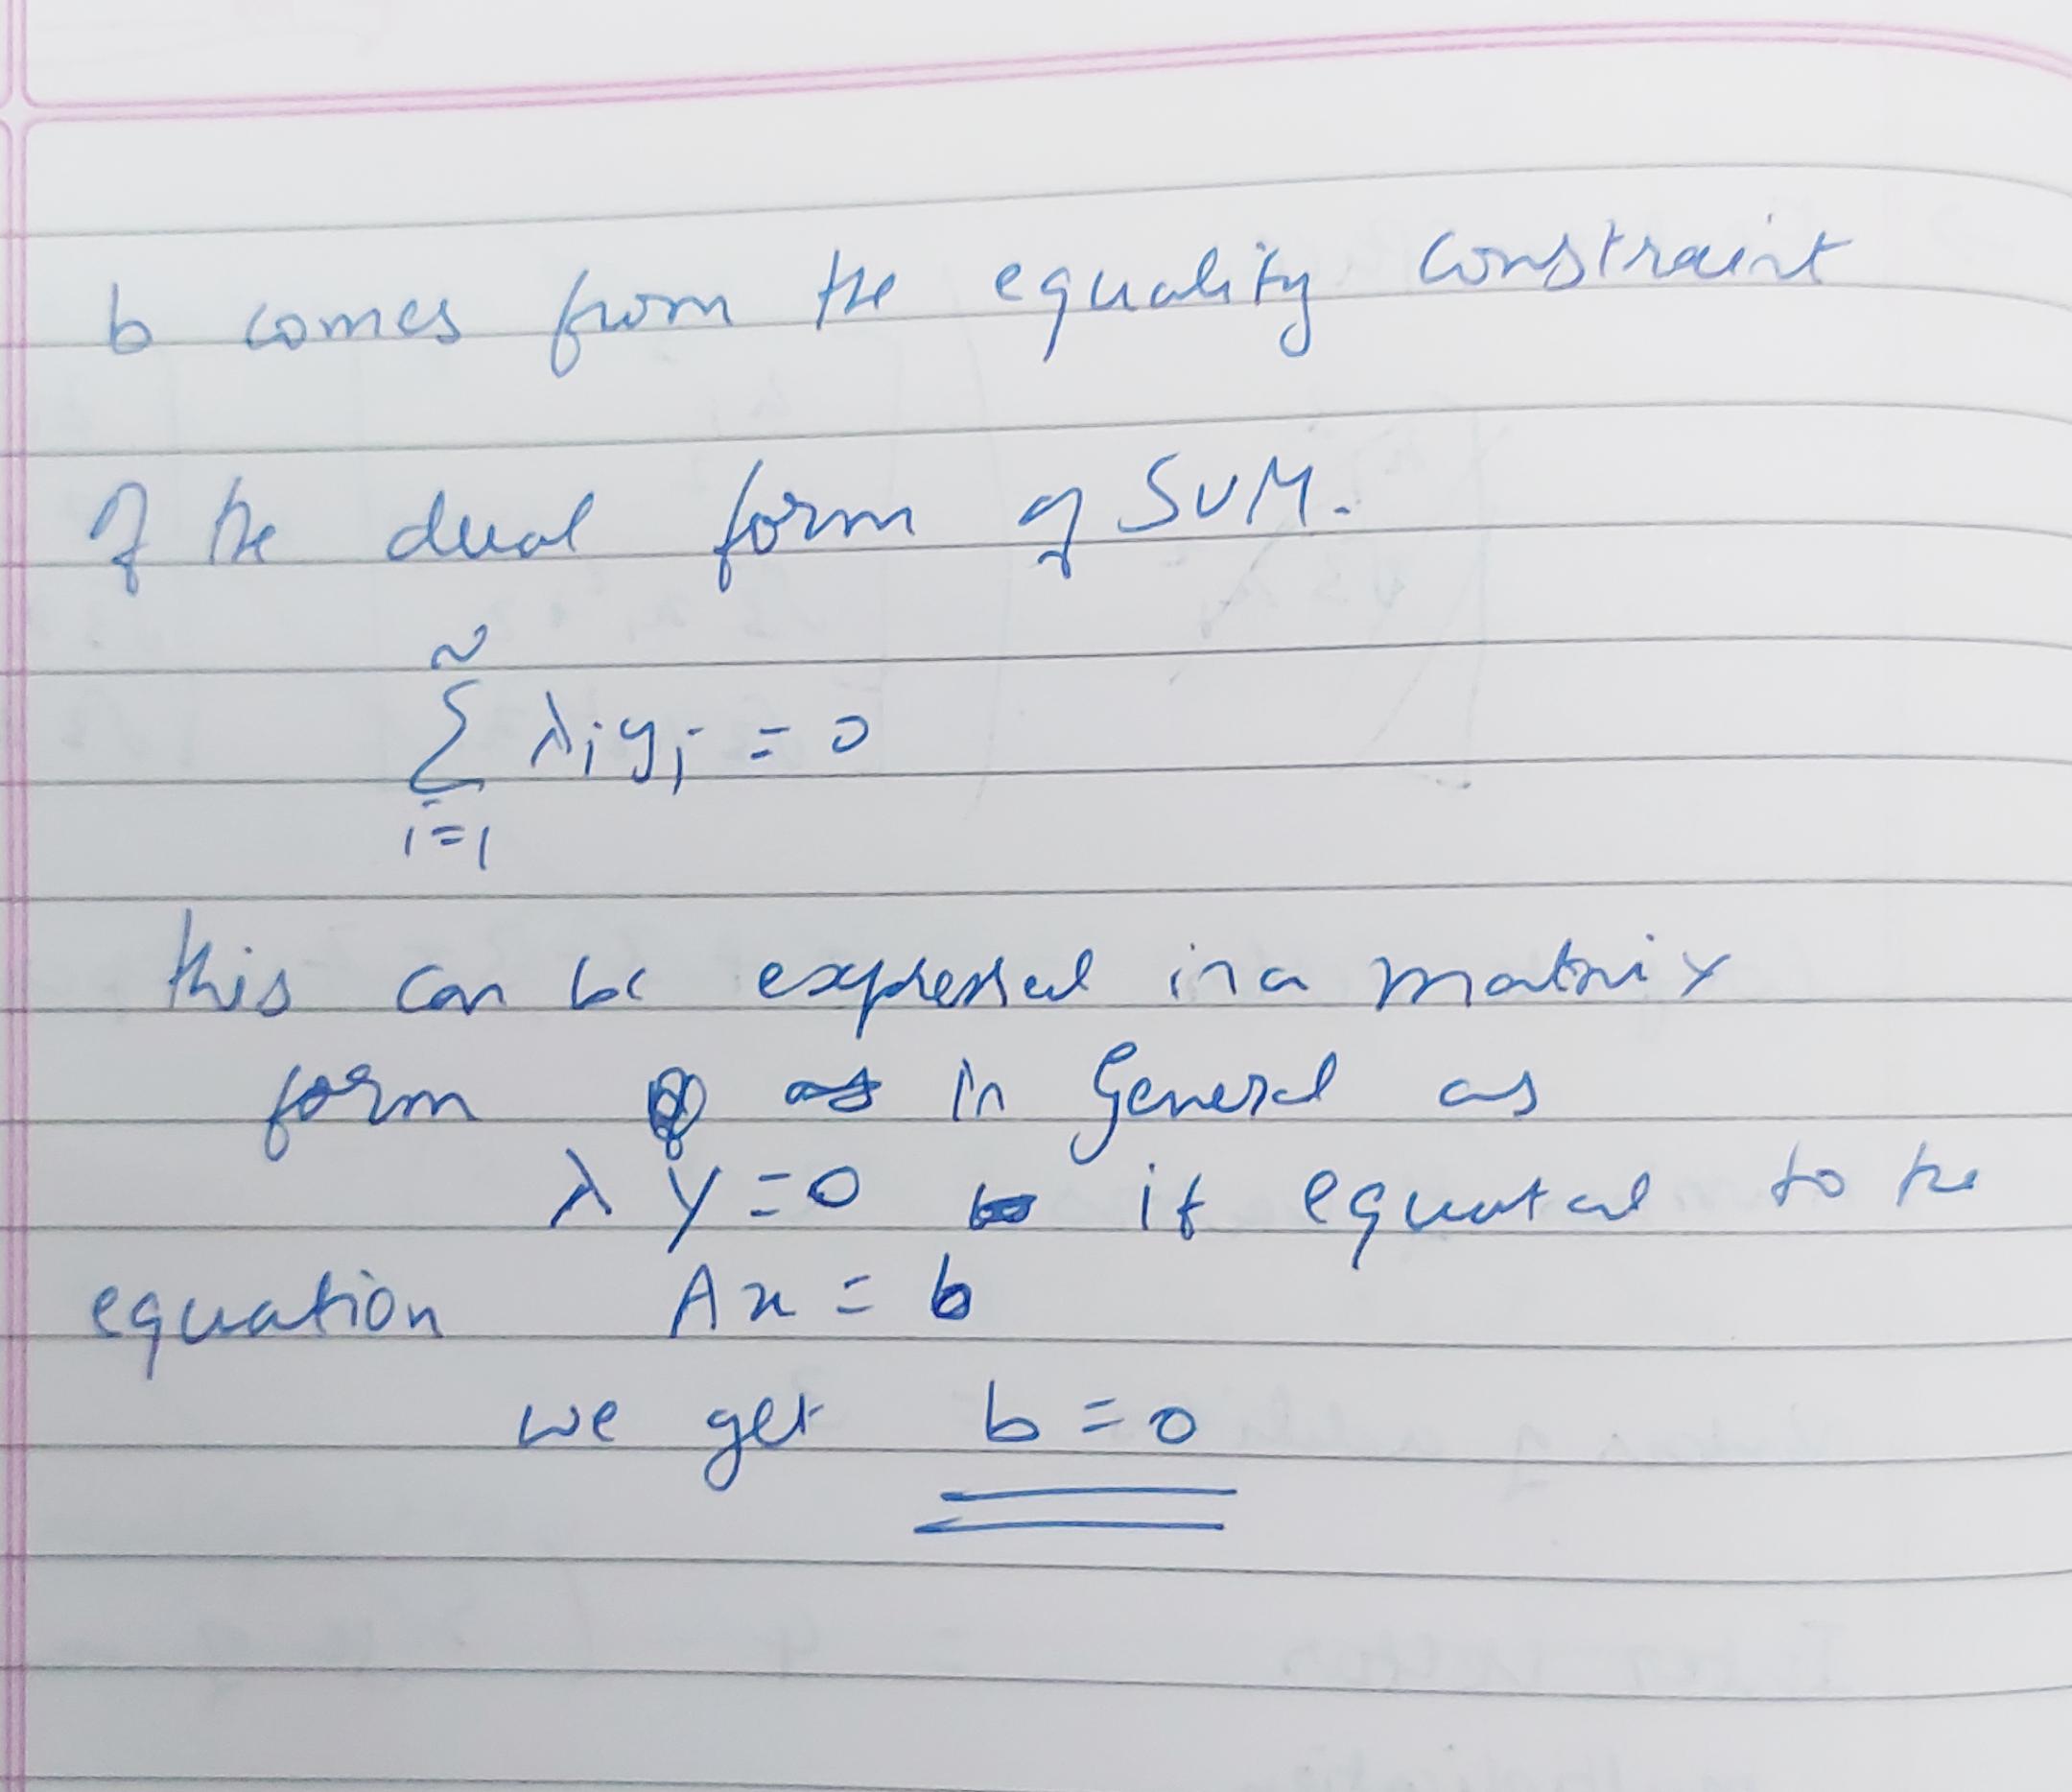 b comes from the equality constraint
of the dual form of SVM.
N
Σ λiyi = 0
i=1
this can be expressed in a matrix
form as in General as
λ y = 0 it equated to the
equation Ax = b
we get b = 0